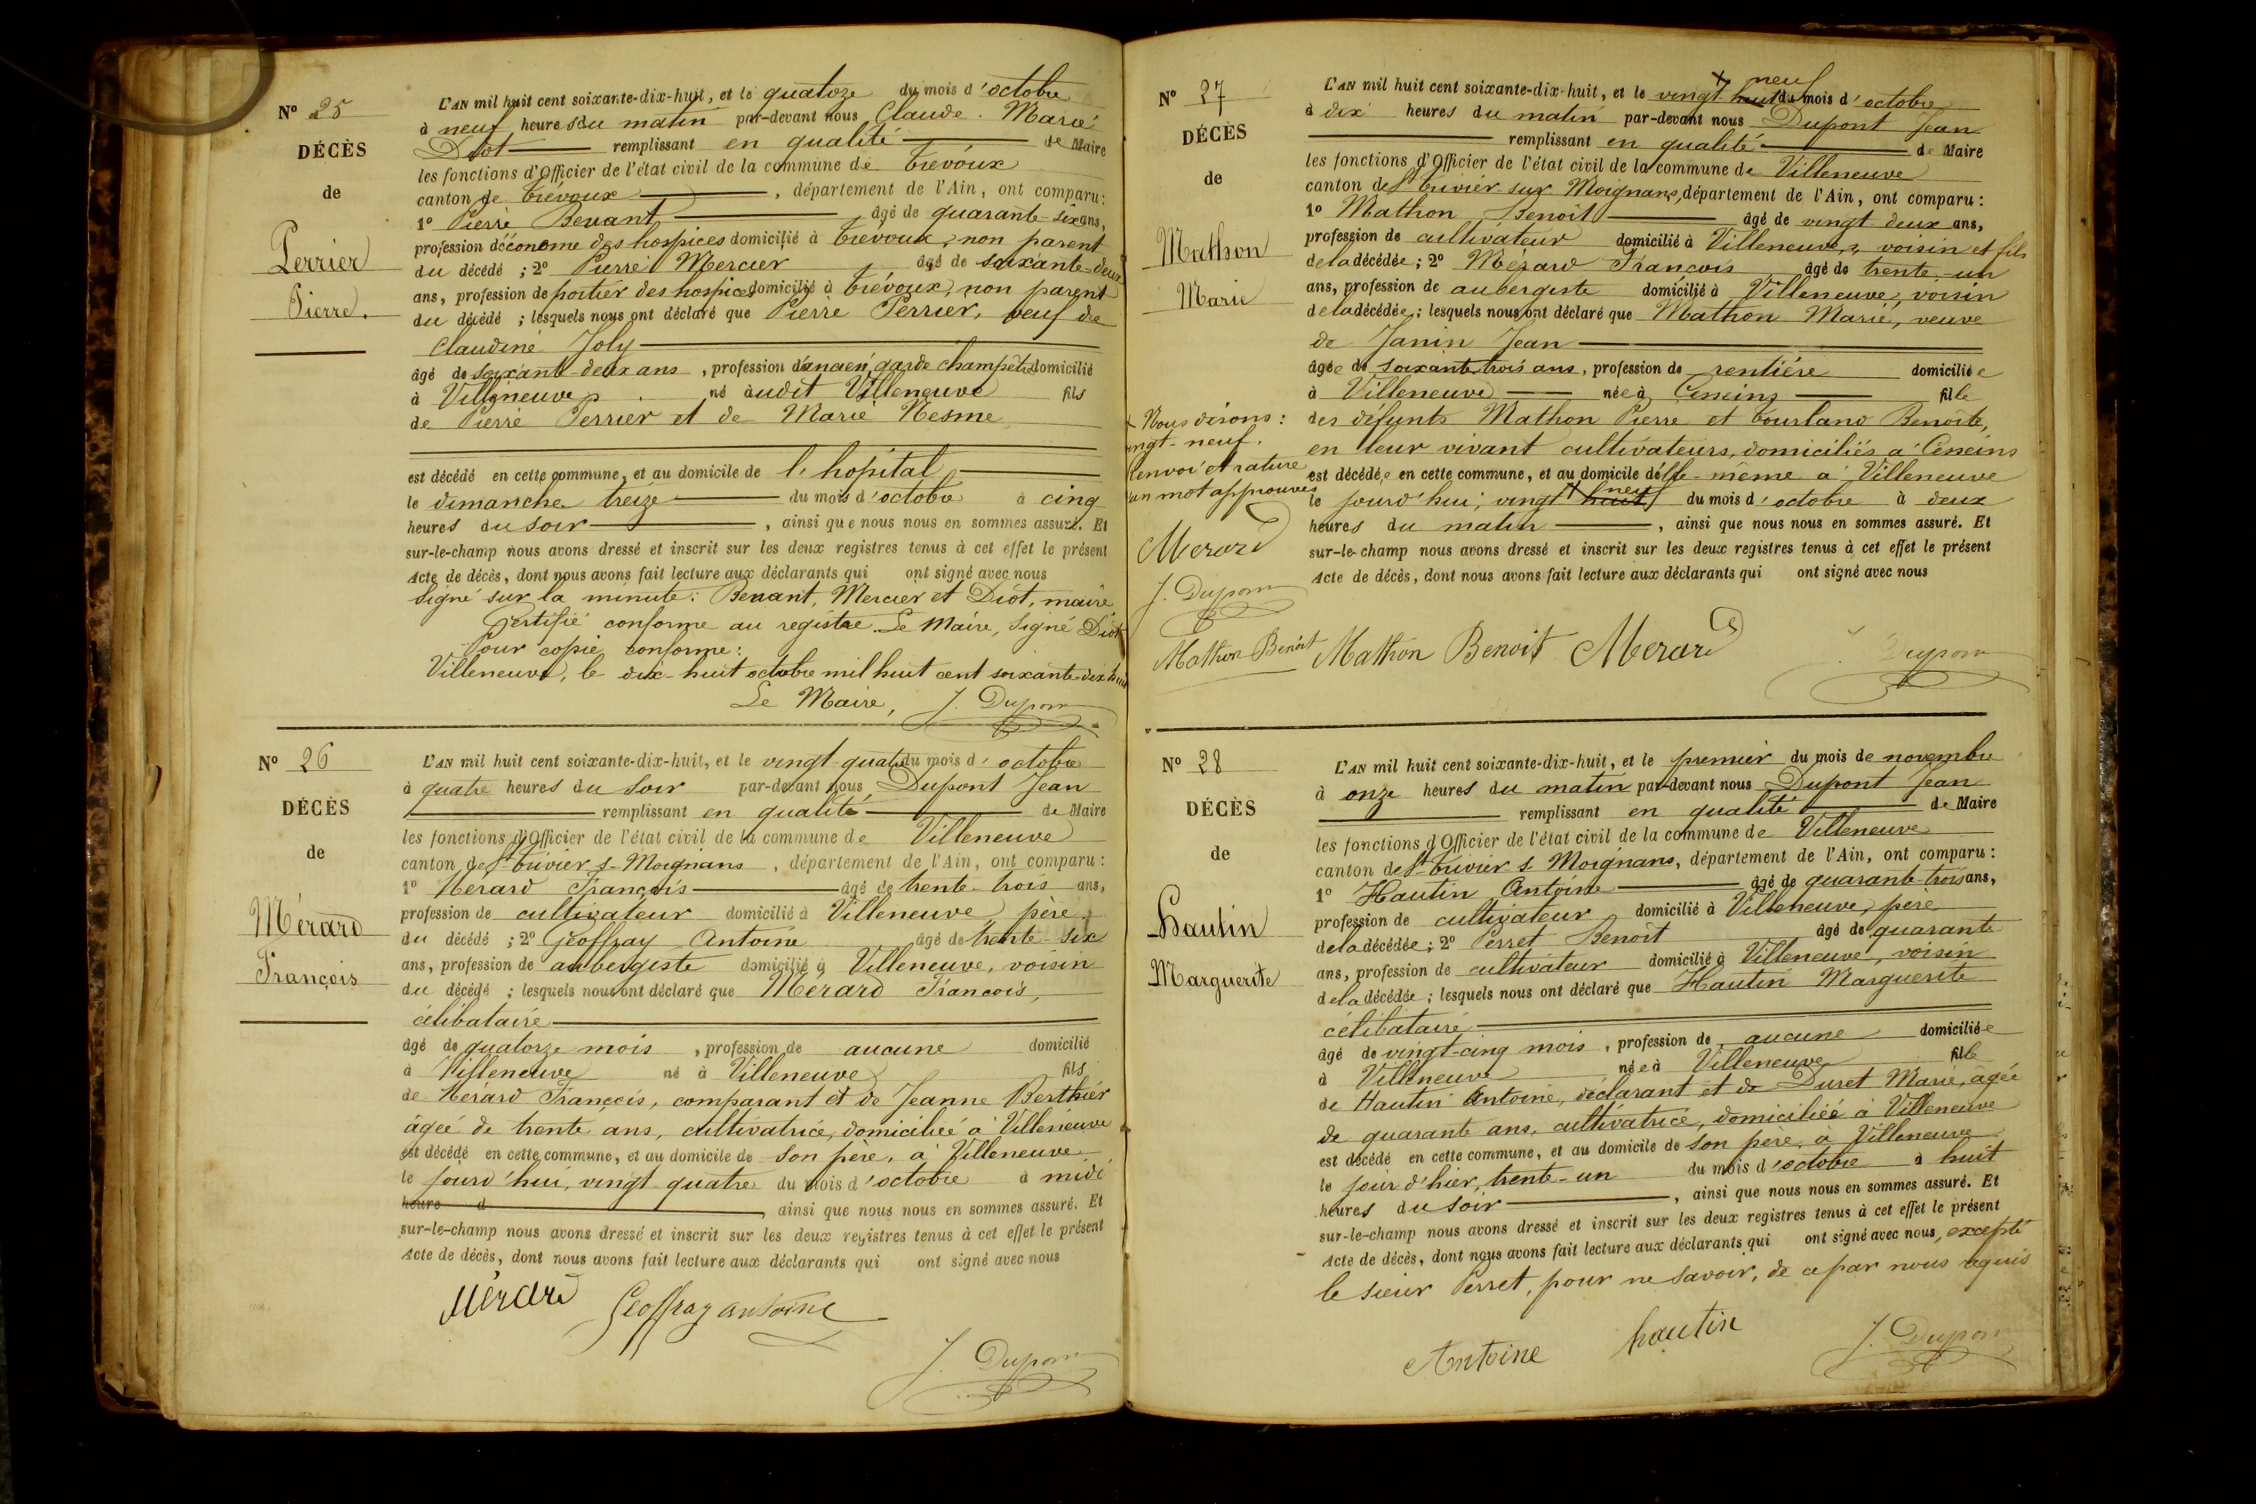 N° 25
DÉCÈS
de
Perrier
Pierre.
L'AN mil huit cent soixante-dix-huit, et le quatoze du mois d'octobre
à neuf heures du matin par-devant nous Claude. Marie
Diot remplissant en qualité de Maire
les fonctions d'Officier de l'état civil de la commune de Trévoux
canton de Trévoux, département de l'Ain, ont comparu :
1° Pierre Benant âgé de quarante-six ans,
profession d'économe des hospices domicilié à Trévoux, non parent
du décédé ; 2° Pierre Mercier âgé de soixante-deux
ans, profession de portier des hospices domicilié à Trévoux, non parent
du décédé ; lesquels nous ont déclaré que Pierre Perrier, veuf de
Claudine Joly
âgé de soixante-deux ans, profession d'ancien garde champêtre domicilié
à Villeneuve né audit Villeneuve fils
de Pierre Perrier et de Marie Nesme
est décédé en cette commune, et au domicile de l'hopital
le dimanche treize du mois d'octobre à cinq
heures du soir, ainsi que nous nous en sommes assuré. Et
sur-le-champ nous avons dressé et inscrit sur les deux registres tenus à cet effet le présent
Acte de décès, dont nous avons fait lecture aux déclarants qui ont signé avec nous
Signé sur la minute : Benant, Mercier et Diot, maire
Certifié conforme au registre. Le Maire, Signé Diot
Pour copie conforme :
Villeneuve, le dix-huit octobre mil huit cent soixante-dix huit
Le Maire, J. Dupont
N° 26
DÉCÈS
de
Mérard
François
L'AN mil huit cent soixante-dix-huit, et le vingt-quatre du mois d'octobre
à quatre heures du soir par-devant nous Dupont Jean
remplissant en qualité de Maire
les fonctions d'Officier de l'état civil de la commune de Villeneuve
canton de St Trivier s. Moignans, département de l'Ain, ont comparu :
1° Mérard François âgé de trente-trois ans,
profession de cultivateur domicilié à Villeneuve, père
du décédé ; 2° Geoffray Antoine âgé de trente-six
ans, profession de aubergiste domicilié à Villeneuve, voisin
du décédé ; lesquels nous ont déclaré que Mérard François,
célibataire
âgé de quatorze mois, profession de aucune domicilié
à Villeneuve né à Villeneuve fils
de Mérard François, comparant et de Jeanne Berthier
âgée de trente ans, cultivatrice, domiciliée à Villeneuve
est décédé en cette commune, et au domicile de son père, à Villeneuve
le jourd'hui, vingt quatre du mois d'octobre à midi
heure d, ainsi que nous nous en sommes assuré. Et
sur-le-champ nous avons dressé et inscrit sur les deux registres tenus à cet effet le présent
Acte de décès, dont nous avons fait lecture aux déclarants qui ont signé avec nous
Mérard Geoffray antoine
J. Dupont
N° 27
DÉCÈS
de
Mathon
Marie
L'AN mil huit cent soixante-dix-huit, et le vingt huit neuf du mois d'octobre
à dix heures du matin par-devant nous Dupont Jean
remplissant en qualité de Maire
les fonctions d'Officier de l'état civil de la commune de Villeneuve
canton de St Trivier-sur Moignans, département de l'Ain, ont comparu :
1° Mathon Benoit âgé de vingt deux ans,
profession de cultivateur domicilié à Villeneuve, voisin et fils
de la décédée ; 2° Mérard François âgé de trente-un
ans, profession de aubergiste domicilié à Villeneuve, voisin
de la décédée ; lesquels nous ont déclaré que Mathon Marie, veuve
de Janin Jean
âgée de soixante-trois ans, profession de rentière domiciliée
à Villeneuve née à Cesseins fille
des défunts Mathon Pierre et Tourland Benoîte,
en leur vivant cultivateurs, domiciliés à Cesseins
est décédée en cette commune, et au domicile d'elle-même à Villeneuve
le jourd'hui, vingt huit neuf du mois d'octobre à deux
heures du matin, ainsi que nous nous en sommes assuré. Et
sur-le-champ nous avons dressé et inscrit sur les deux registres tenus à cet effet le présent
Acte de décès, dont nous avons fait lecture aux déclarants qui ont signé avec nous
+ Nous disons :
vingt-neuf.
Renvoi et rature
un mot approuvés
Merard
J. Dupont
Mathon Benoit
Mathon Benoit Merard J. Dupont
N° 28
DÉCÈS
de
Hautin
Marguerite
L'AN mil huit cent soixante-dix-huit, et le premier du mois de novembre
à onze heures du matin par-devant nous Dupont Jean
remplissant en qualité de Maire
les fonctions d'Officier de l'état civil de la commune de Villeneuve
canton de St Trivier s. Moignans, département de l'Ain, ont comparu :
1° Hautin Antoine âgé de quarante-trois ans,
profession de cultivateur domicilié à Villeneuve, père
de la décédée ; 2° Perret Benoit âgé de quarante
ans, profession de cultivateur domicilié à Villeneuve, voisin
de la décédée ; lesquels nous ont déclaré que Hautin Marguerite
célibataire
âgé de vingt-cinq mois, profession de aucune domiciliée
à Villeneuve née à Villeneuve fille
de Hautin Antoine, déclarant et de Duret Marie, âgée
de quarante ans, cultivatrice, domiciliée à Villeneuve
est décédé en cette commune, et au domicile de son père, à Villeneuve
le jour d'hier, trente-un du mois d'octobre à huit
heures du soir, ainsi que nous nous en sommes assuré. Et
sur-le-champ nous avons dressé et inscrit sur les deux registres tenus à cet effet le présent
Acte de décès, dont nous avons fait lecture aux déclarants qui ont signé avec nous, excepté
le sieur Perret, pour ne savoir, de ce par nous requis
Antoine hautin J. Dupont